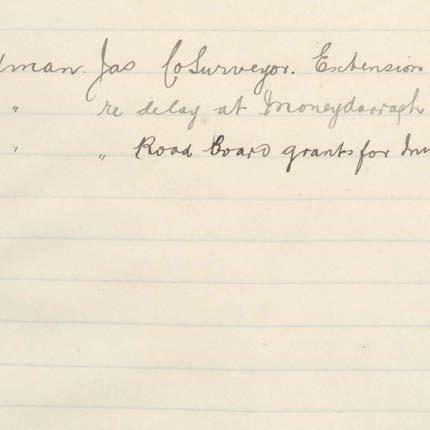 dman Jas Co Surveyor. Extension
" re delay at Moneydarragh
" " Road Board grants for